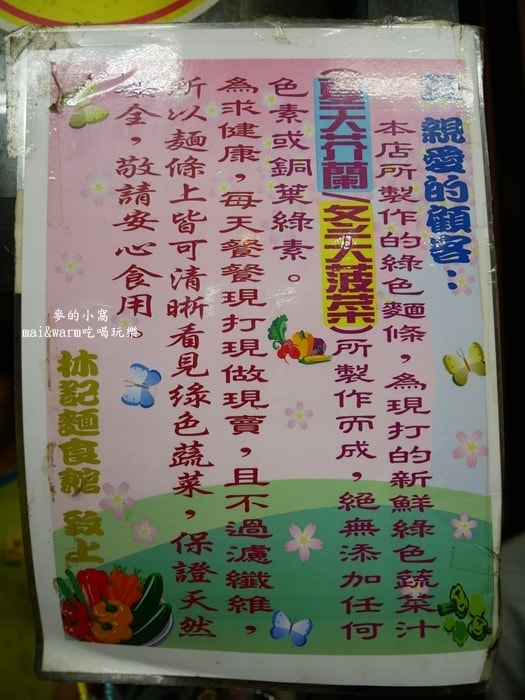 親愛的顧客：
本店所製作的綠色麵條，為現打的新鮮綠色蔬菜汁
(夏天芥蘭/冬天菠菜)所製作而成，絕無添加任何
色素或銅葉綠素。
為求健康，每天餐餐現打現做現賣，且不過濾纖維，
所以麵條上皆可清晰看見綠色蔬菜，保證天然
安全，敬請安心食用。
林記麵食館 敬上
麥的小窩
mai&warm吃喝玩樂